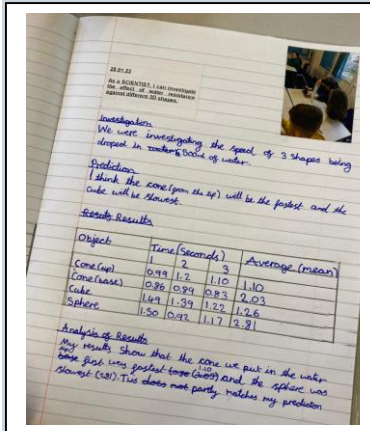 25.01.23
As a SCIENTIST, I can investigate
the effect of water resistance
against different 3D shapes.
Investigation
We were investigating the speed of 3 shapes being
droped in 500ml of water.
Prediction
I think the cone (from the tip) will be the fastest and the
cube will be slowest.
Results Results
Object Time (Seconds) Average (mean)
1 2 3
Cone (tip) 0.99 1.2 1.10 1.10
Cone (base) 0.86 0.89 0.83 2.03
Cube 1.49 1.39 1.22 1.26
Sphere 1.50 0.92 1.17 2.81
Analysis of Results
My results show that the cone we put in the water
base first was fastest (1.10) and the sphere was
slowest (2.81). This does not partly matches my prediction